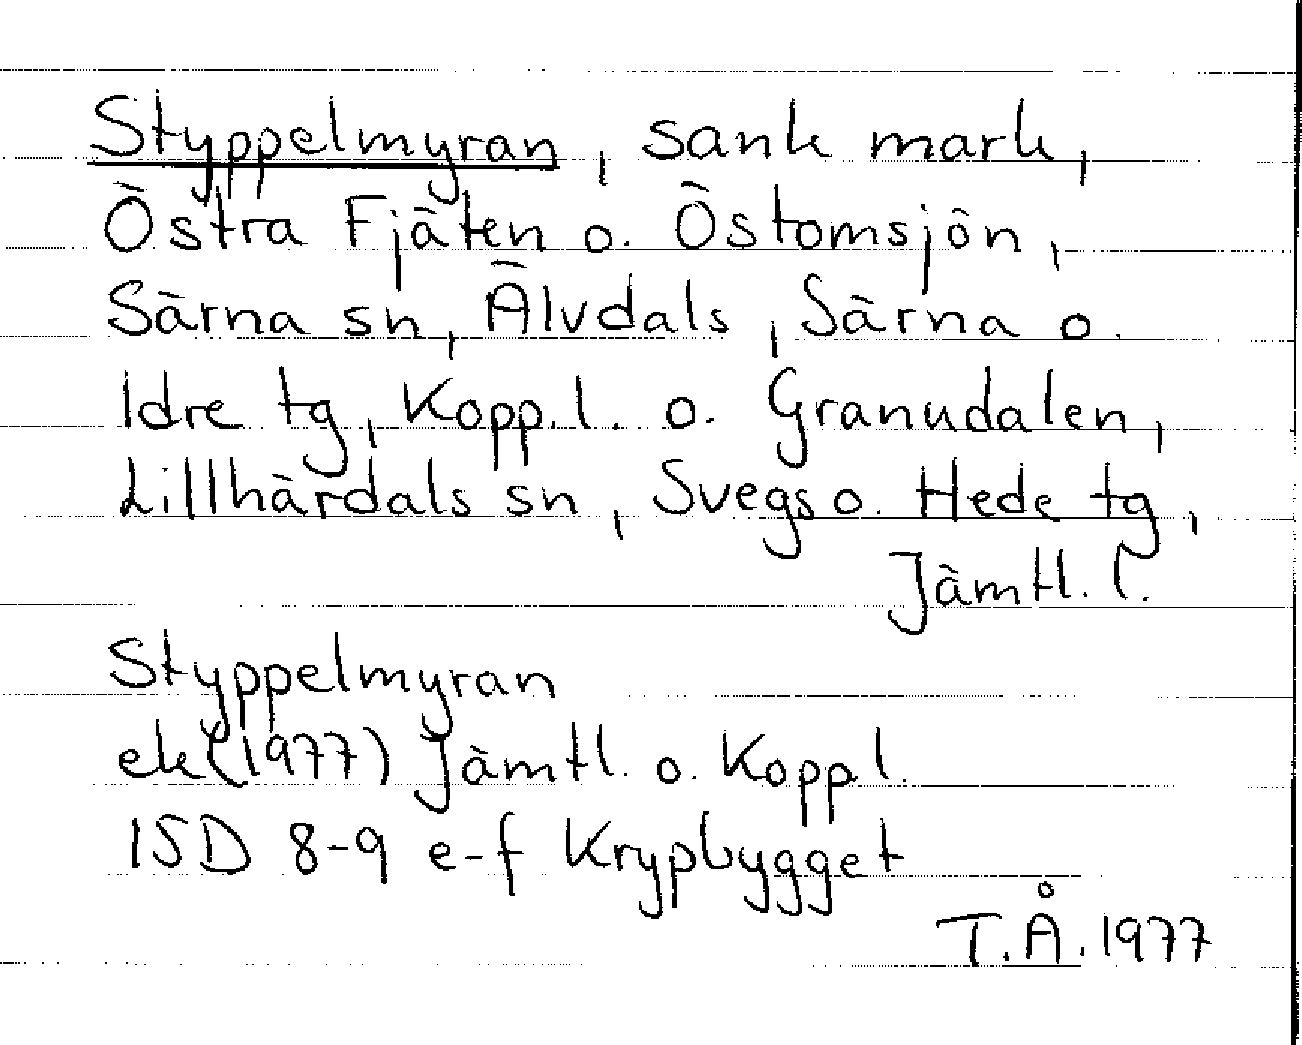 Styppelmyran, sank mark,
Östra Fjäten o. Östomsjön,
Särna sn, Älvdals, Särna o.
Idre tg, Kopp.l. o. Granudalen,
Lillhärdals sn, Svegs o. Hede tg,
Jämtl. l.
Styppelmyran
ek(1977) Jämtl. o. Koppl.
15D 8-9 e-f Krypbygget
T.Å. 1977